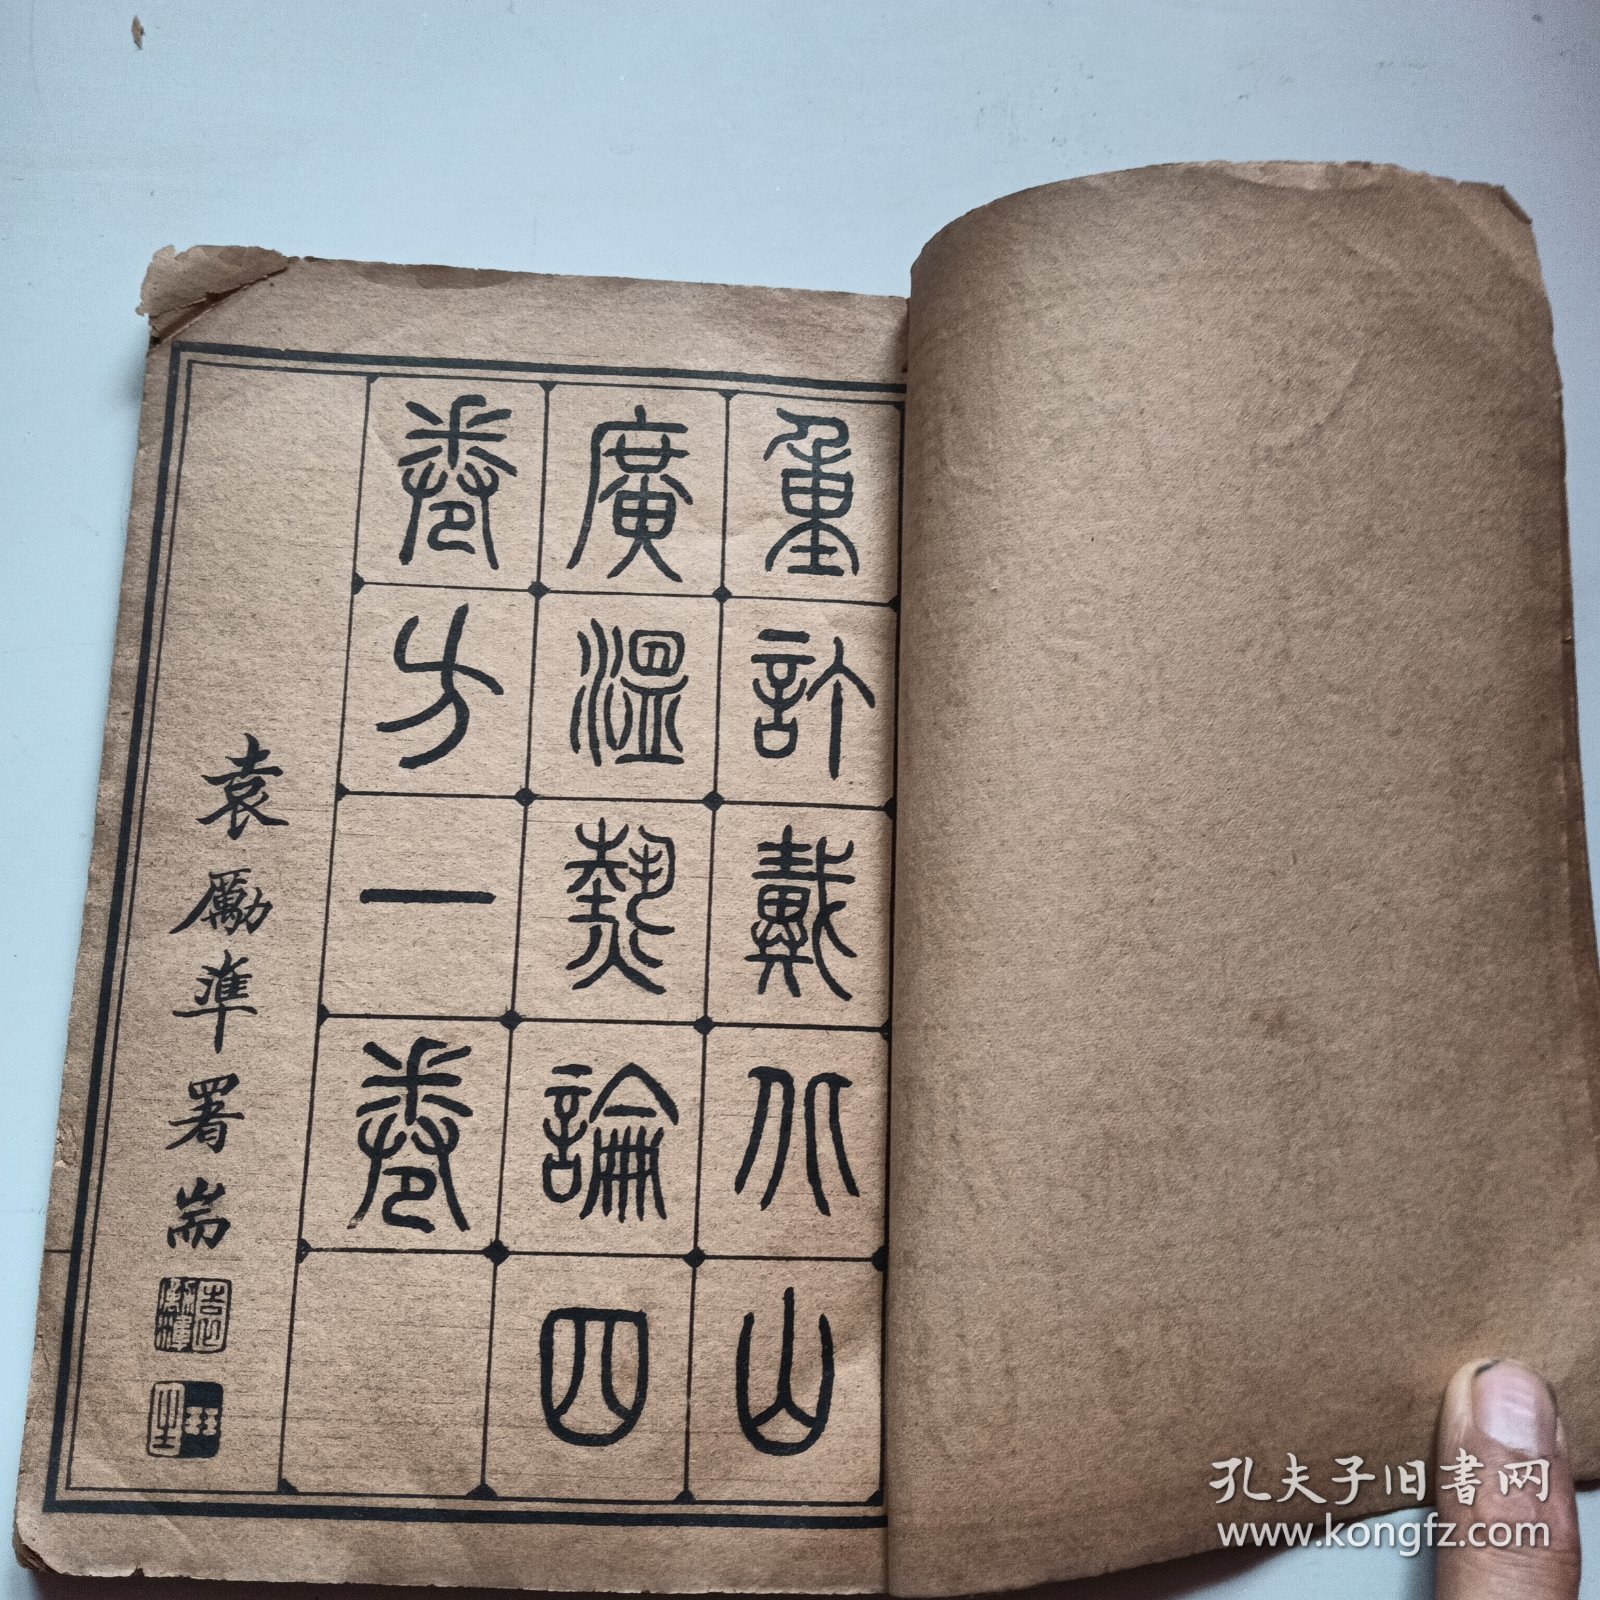 重訂戴北山
廣溫熱論四
卷方一卷
袁勵準署耑
孔夫子旧书网
www.kongfz.com